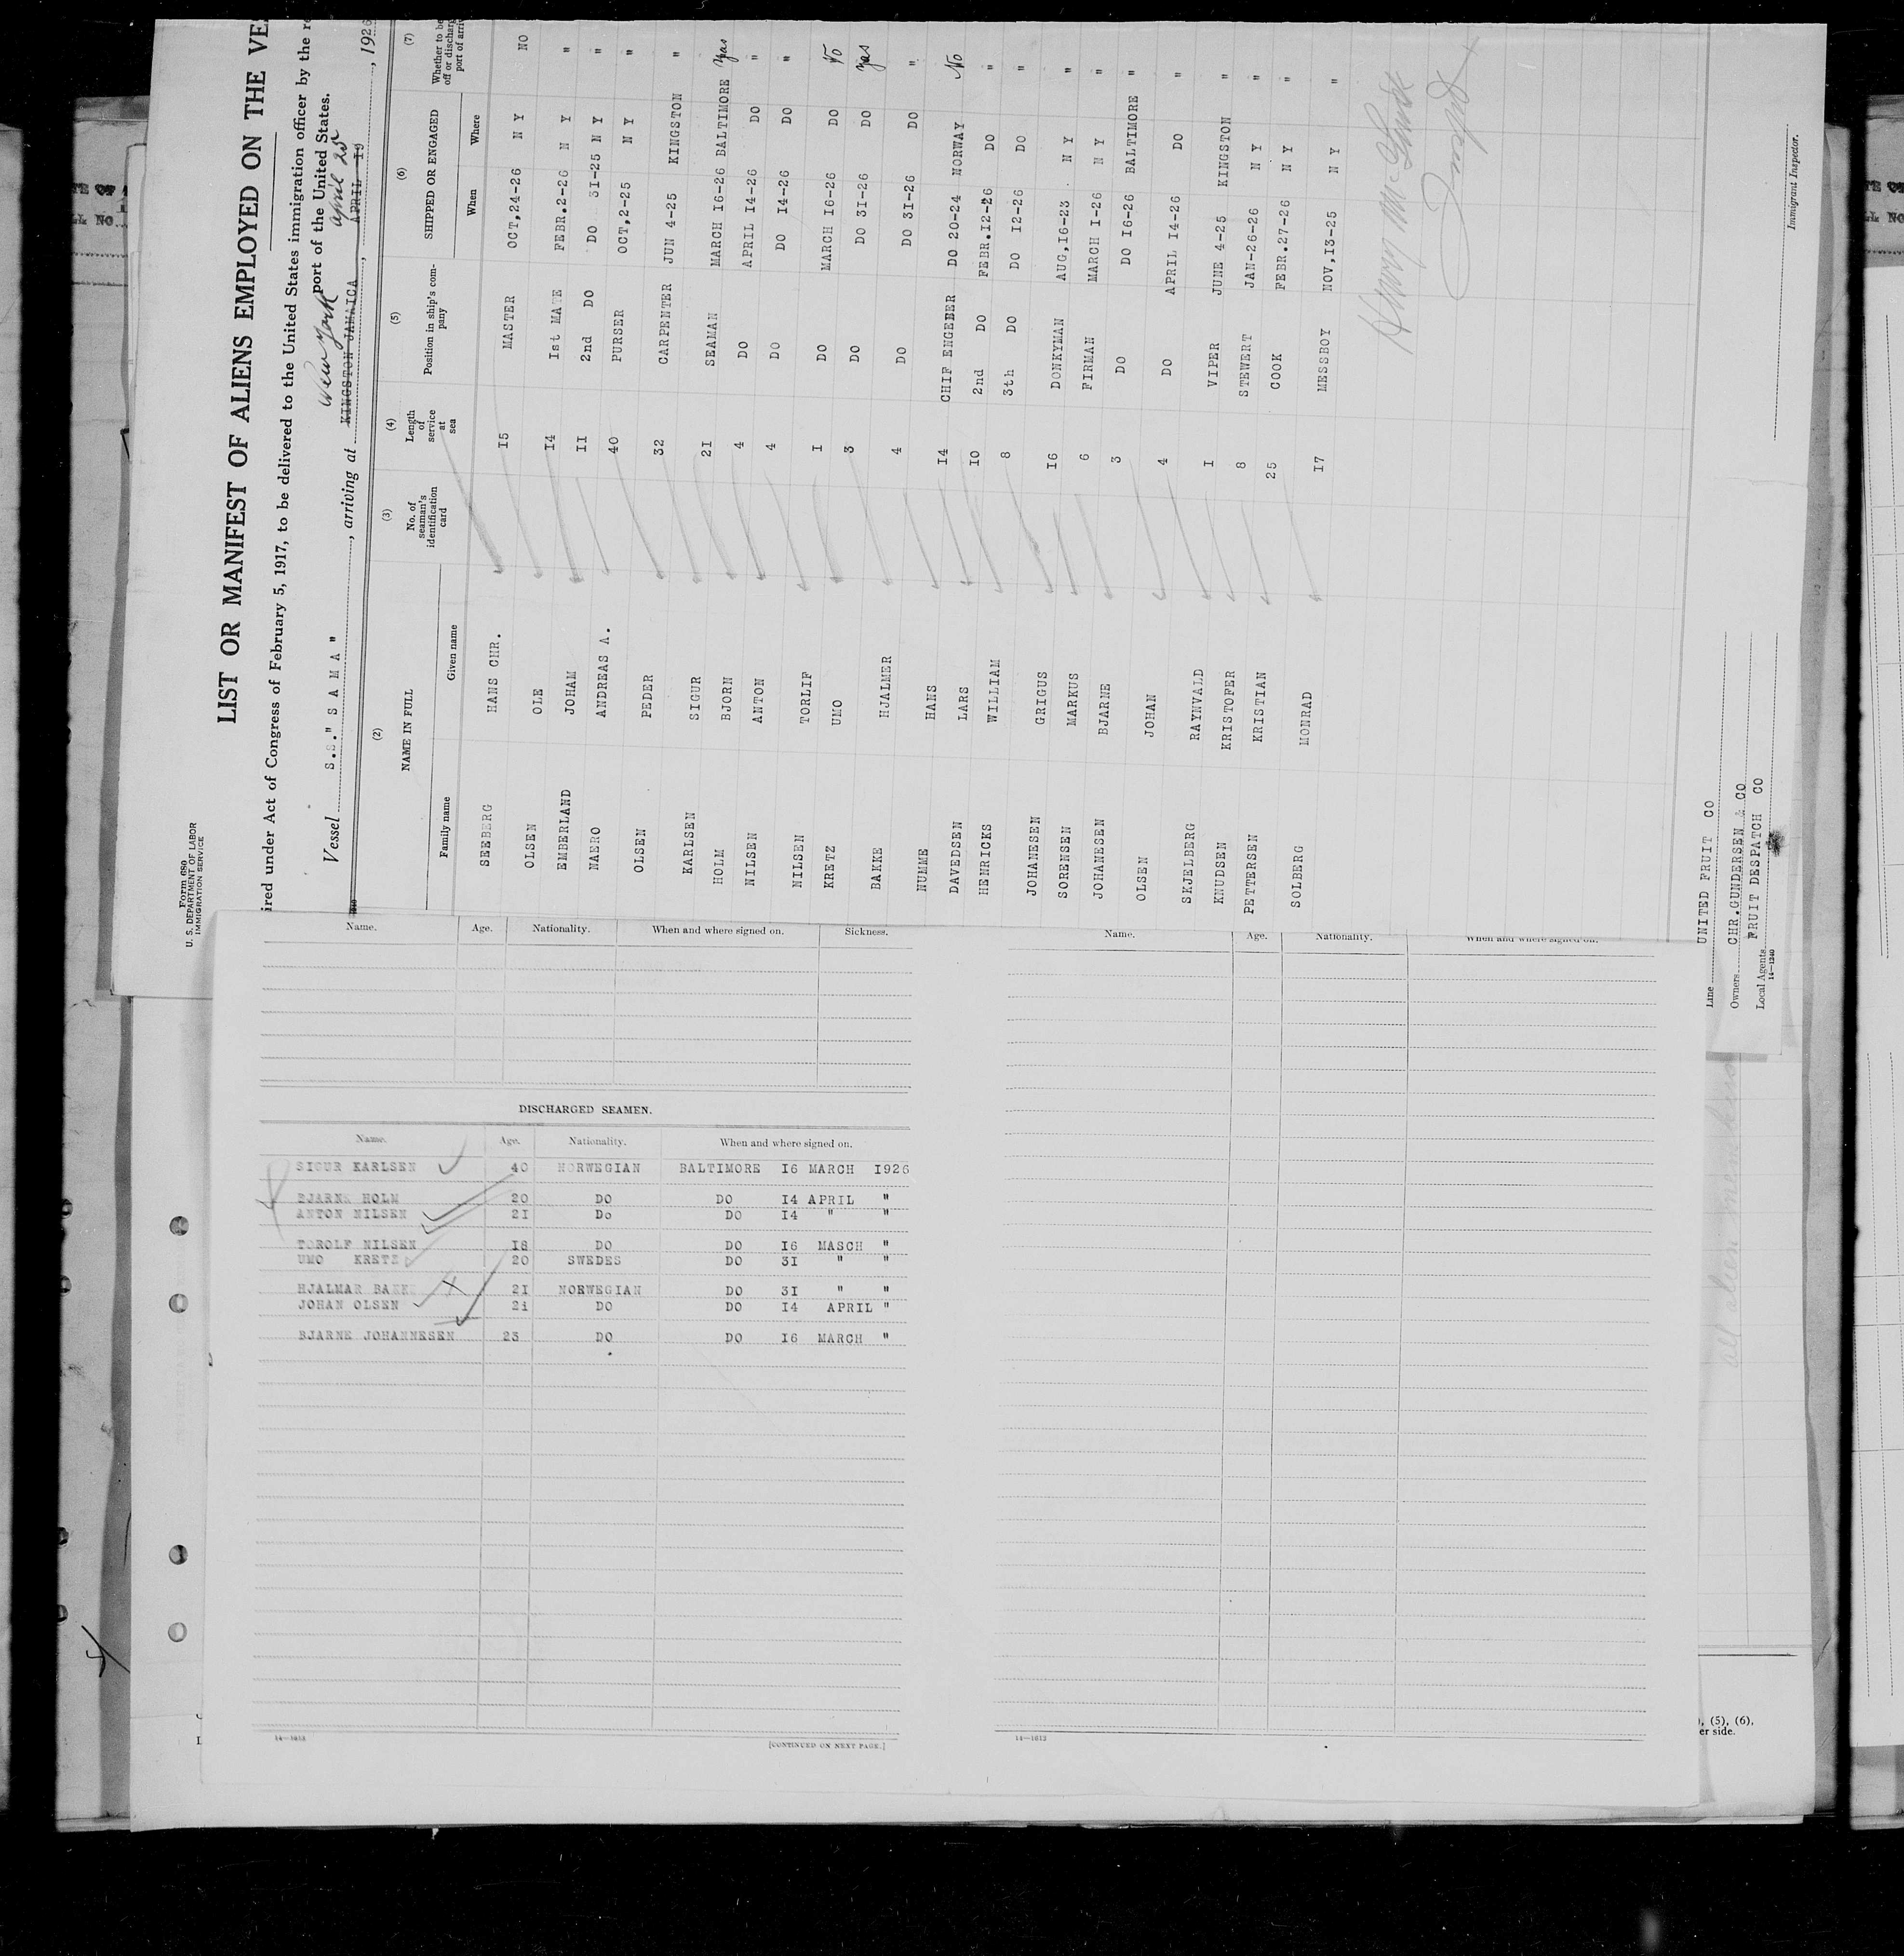 Form 680
U. S. DEPARTMENT OF LABOR
IMMIGRATION SERVICE
LIST OR MANIFEST OF ALIENS EMPLOYED ON THE VE
ired under Act of Congress of February 5, 1917, to be delivered to the United States immigration officer by the re
port of the United States.
Vessel S.S." S A M A " , arriving at KINGSTON JAMAICA , APRIL 19 , 1926
New York april 25
(2) (3) (4) (5) (6) (7)
NAME IN FULL
Family name Given name
No. of seaman's identification card
Length of service at sea
Position in ship's company
SHIPPED OR ENGAGED
When Where
Whether to be
off or discharg
port of arriv
SEEBERG HANS CHR. 15 MASTER OCT,24-26 N Y NO
OLSEN OLE 14 Ist MATE FEBR.2-26 N Y "
EMBERLAND JOHAM 11 2nd DO DO 31-25 N Y "
NAERO ANDREAS A. 40 PURSER OCT,2-25 N Y "
OLSEN PEDER 32 CARPENTER JUN 4-25 KINGSTON "
KARLSEN SIGUR 21 SEAMAN MARCH 16-26 BALTIMORE Yas
HOLM BJORN 4 DO APRIL 14-26 DO "
NILSEN ANTON 4 DO DO 14-26 DO "
NILSEN TORLIF I DO MARCH 16-26 DO No
KRETZ UMO 3 DO DO 31-26 DO Yas
BAKKE HJALMER 4 DO DO 31-26 DO "
NUMME HANS 14 CHIF ENGEEER DO 20-24 NORWAY No
DAVEDSEN LARS 10 2nd DO FEBR.12-26 DO "
HENRICKS WILLIAM 8 3th DO DO 12-26 DO "
JOHANESEN GRIGUS 16 DONKYMAN AUG,16-23 N Y "
SORENSEN MARKUS 6 FIRMAN MARCH I-26 N Y "
JOHANESEN BJARNE 3 DO DO 16-26 BALTIMORE "
OLSEN JOHAN 4 DO APRIL 14-26 DO "
SKJELBERG RAYNVALD I VIPER JUNE 4-25 KINGSTON "
KNUDSEN KRISTOFER 8 STEWERT JAN-26-26 N Y "
PETTERSEN KRISTIAN 25 COOK FEBR.27-26 N Y "
SOLBERG MONRAD 17 MESSBOY NOV,13-25 N Y "
Immigrant Inspector.
Line UNITED FRUIT CO
Owners CHR.GUNDERSEN & CO
Local Agents FRUIT DESPATCH CO
14—1240
Name. Age. Nationality. When and where signed on. Sickness.
DISCHARGED SEAMEN.
Name. Age. Nationality. When and where signed on.
SIGUR KARLSEN 40 NORWEGIAN BALTIMORE 16 MARCH 1926
BJARNE HOLM 20 DO DO 14 APRIL "
ANTON NILSEN 21 Do DO 14 " "
TOROLF NILSEN 18 DO DO 16 MASCH "
UMO KRETZ 20 SWEDES DO 31 " "
HJALMAR 21 NORWEGIAN DO 31 " "
JOHAN OLSEN 21 DO DO 14 APRIL "
BJARNE JOHANNESEN 23 DO DO 16 MARCH "
14—1613
[CONTINUED ON NEXT PAGE.]
Name. Age. Nationality. When and where signed on.
14—1613
), (5), (6),
er side.